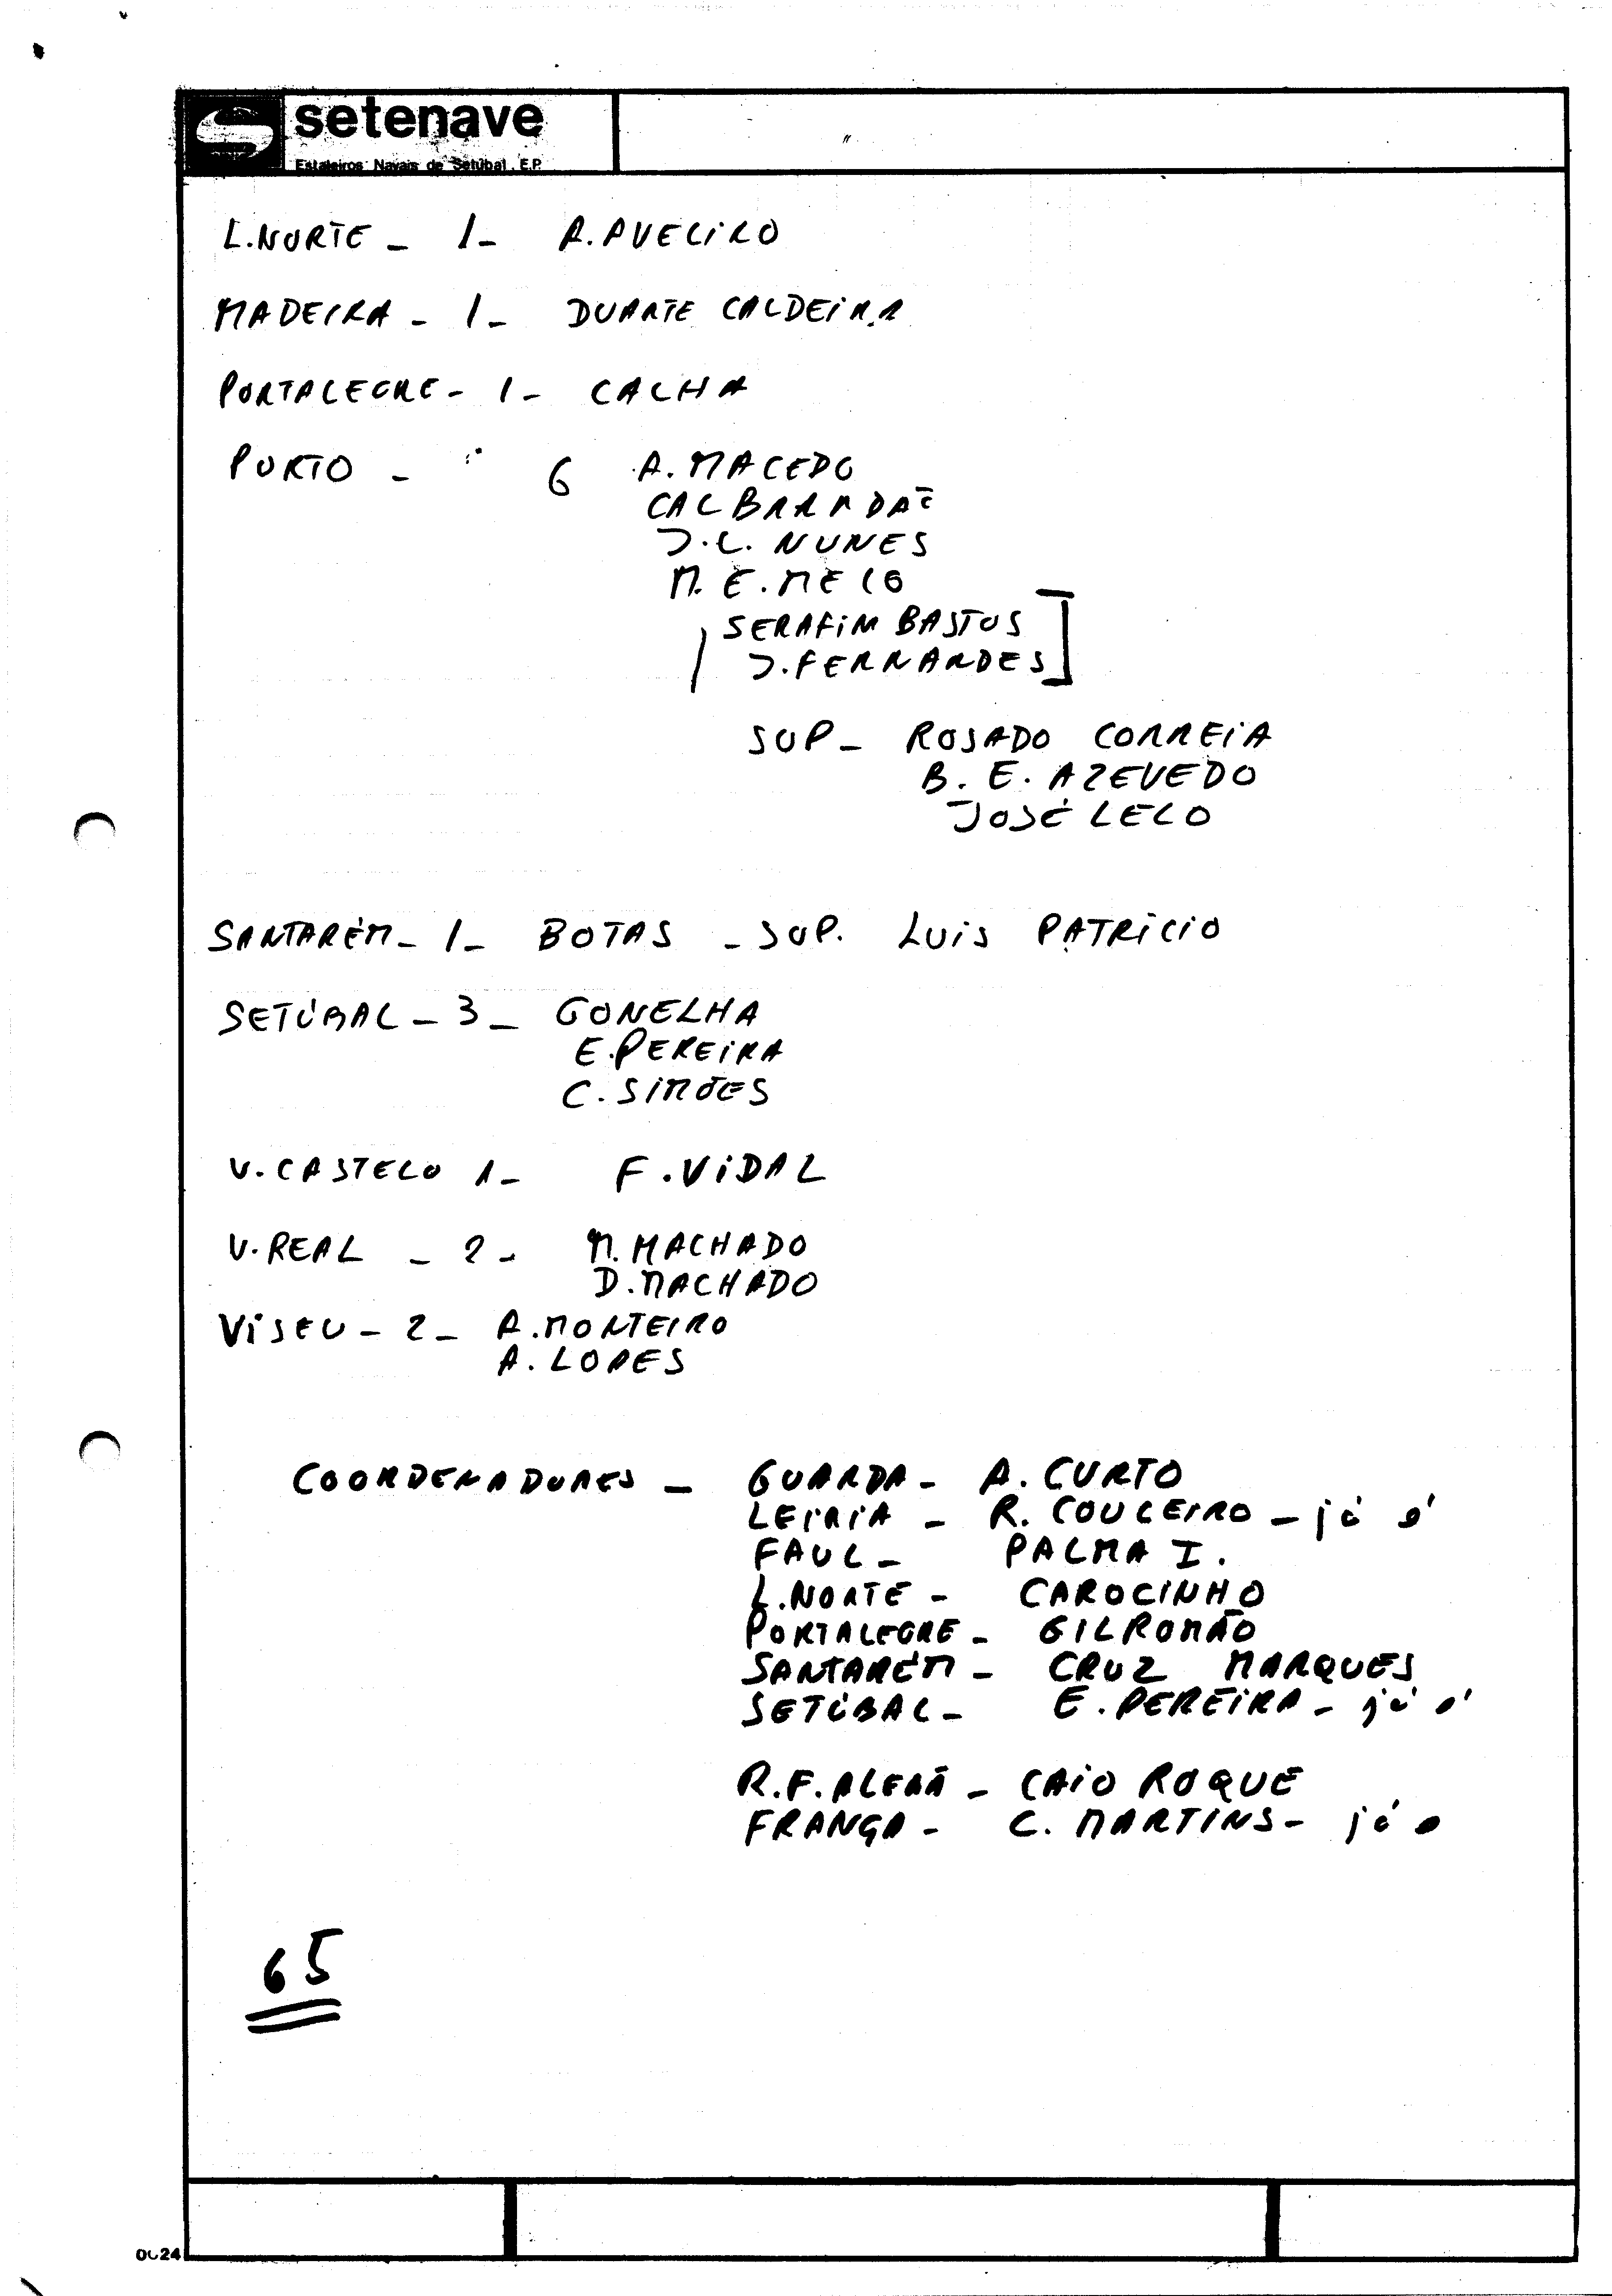 setenave
Estaleiros Navais de Setúbal, E.P.
L. NORTE - 1 - A. AVELINO
MADEIRA - 1 - DUARTE CALDEIRA
PORTALEGRE - 1 - CALHA
PORTO - 6 A. MACEDO
CAL BRANDÃE
J.L. NUNES
M. E. MELO
SERAFIM BASTOS
J. FERNANDES
SUP - ROSADO CORREIA
B. E. AZEVEDO
JOSÉ LELO
SANTARÉM - 1 - BOTAS - SUP. LUIS PATRÍCIO
SETÚBAL - 3 - GONELHA
E. PEREIRA
C. SIMÕES
V. CASTELO 1 - F. VIDAL
V. REAL - 2 - M. MACHADO
D. MACHADO
VISEU - 2 - A. MONTEIRO
A. LOPES
COORDENADORES - GUARDA - A. CURTO
LEIRIA - R. COUCEIRO - já é
FAUL - PALMA I.
L. NORTE - CAROCINHO
PORTALEGRE - GIL ROMÃO
SANTARÉM - CRUZ MARQUES
SETÚBAL - E. PEREIRA - já é
R.F. ALEMÃ - CAIO ROQUE
FRANÇA - C. MARTINS - já é
65